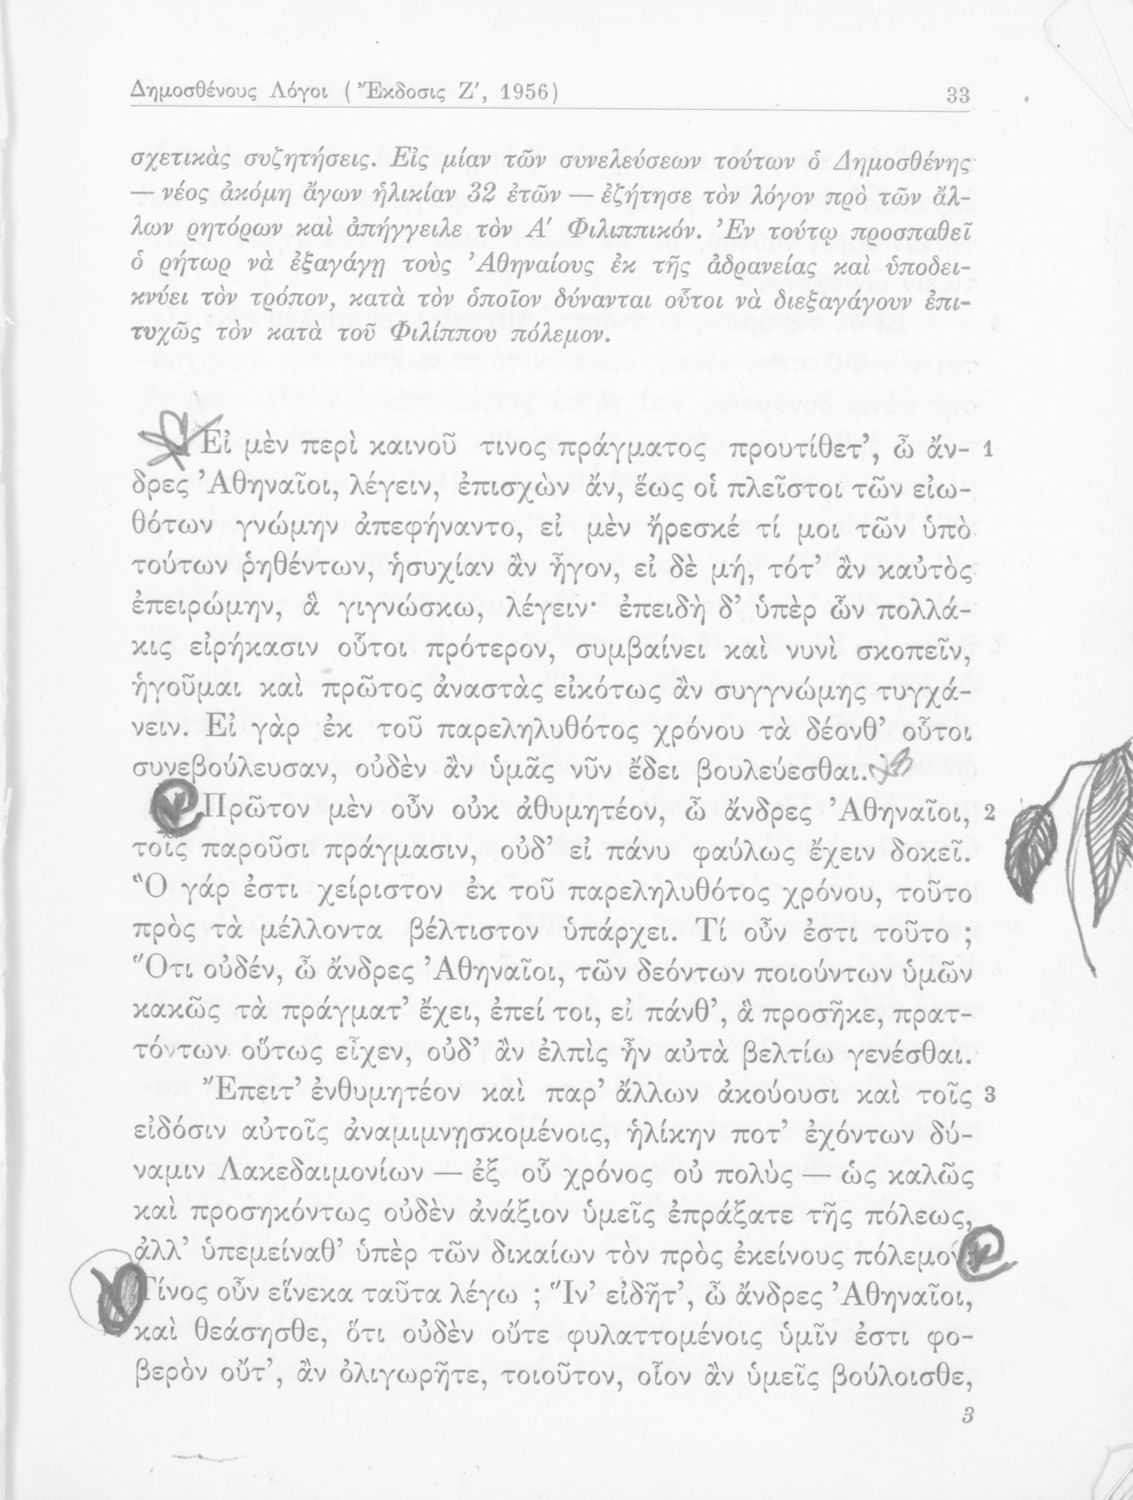 Δημοσθένους Λόγοι ( Ἔκδοσις Ζ′, 1956) 33
σχετικὰς συζητήσεις. Εἰς μίαν τῶν συνελεύσεων τούτων ὁ Δημοσθένης
— νέος ἀκόμη ἄγων ἡλικίαν 32 ἐτῶν — ἐζήτησε τὸν λόγον πρὸ τῶν ἄλ-
λων ρητόρων καὶ ἀπήγγειλε τὸν Α′ Φιλιππικόν. Ἐν τούτῳ προσπαθεῖ
ὁ ρήτωρ νὰ ἐξαγάγῃ τοὺς Ἀθηναίους ἐκ τῆς ἀδρανείας καὶ ὑποδει-
κνύει τὸν τρόπον, κατὰ τὸν ὁποῖον δύνανται οὗτοι νὰ διεξαγάγουν ἐπι-
τυχῶς τὸν κατὰ τοῦ Φιλίππου πόλεμον.
Εἰ μὲν περὶ καινοῦ τινος πράγματος προυτίθετ’, ὦ ἄν- 1
δρες Ἀθηναῖοι, λέγειν, ἐπισχὼν ἄν, ἕως οἱ πλεῖστοι τῶν εἰω-
θότων γνώμην ἀπεφήναντο, εἰ μὲν ἤρεσκέ τί μοι τῶν ὑπὸ
τούτων ῥηθέντων, ἡσυχίαν ἂν ἦγον, εἰ δὲ μή, τότ’ ἂν καὐτὸς
ἐπειρώμην, ἃ γιγνώσκω, λέγειν· ἐπειδὴ δ’ ὑπὲρ ὧν πολλά-
κις εἰρήκασιν οὗτοι πρότερον, συμβαίνει καὶ νυνὶ σκοπεῖν,
ἡγοῦμαι καὶ πρῶτος ἀναστὰς εἰκότως ἂν συγγνώμης τυγχά-
νειν. Εἰ γὰρ ἐκ τοῦ παρεληλυθότος χρόνου τὰ δέονθ’ οὗτοι
συνεβούλευσαν, οὐδὲν ἂν ὑμᾶς νῦν ἔδει βουλεύεσθαι.
Πρῶτον μὲν οὖν οὐκ ἀθυμητέον, ὦ ἄνδρες Ἀθηναῖοι, 2
τοῖς παροῦσι πράγμασιν, οὐδ’ εἰ πάνυ φαύλως ἔχειν δοκεῖ.
Ὃ γάρ ἐστι χείριστον ἐκ τοῦ παρεληλυθότος χρόνου, τοῦτο
πρὸς τὰ μέλλοντα βέλτιστον ὑπάρχει. Τί οὖν ἐστι τοῦτο ;
Ὅτι οὐδέν, ὦ ἄνδρες Ἀθηναῖοι, τῶν δεόντων ποιούντων ὑμῶν
κακῶς τὰ πράγματ’ ἔχει, ἐπεί τοι, εἰ πάνθ’, ἃ προσῆκε, πρατ-
τόντων οὕτως εἶχεν, οὐδ’ ἂν ἐλπὶς ἦν αὐτὰ βελτίω γενέσθαι.
Ἔπειτ’ ἐνθυμητέον καὶ παρ’ ἄλλων ἀκούουσι καὶ τοῖς 3
εἰδόσιν αὐτοῖς ἀναμιμνῃσκομένοις, ἡλίκην ποτ’ ἐχόντων δύ-
ναμιν Λακεδαιμονίων — ἐξ οὗ χρόνος οὐ πολὺς — ὡς καλῶς
καὶ προσηκόντως οὐδὲν ἀνάξιον ὑμεῖς ἐπράξατε τῆς πόλεως,
ἀλλ’ ὑπεμείναθ’ ὑπὲρ τῶν δικαίων τὸν πρὸς ἐκείνους πόλεμον
Τίνος οὖν εἵνεκα ταῦτα λέγω ; Ἵν’ εἰδῆτ’, ὦ ἄνδρες Ἀθηναῖοι,
καὶ θεάσησθε, ὅτι οὐδὲν οὔτε φυλαττομένοις ὑμῖν ἐστι φο-
βερὸν οὔτ’, ἂν ὀλιγωρῆτε, τοιοῦτον, οἷον ἂν ὑμεῖς βούλοισθε,
3